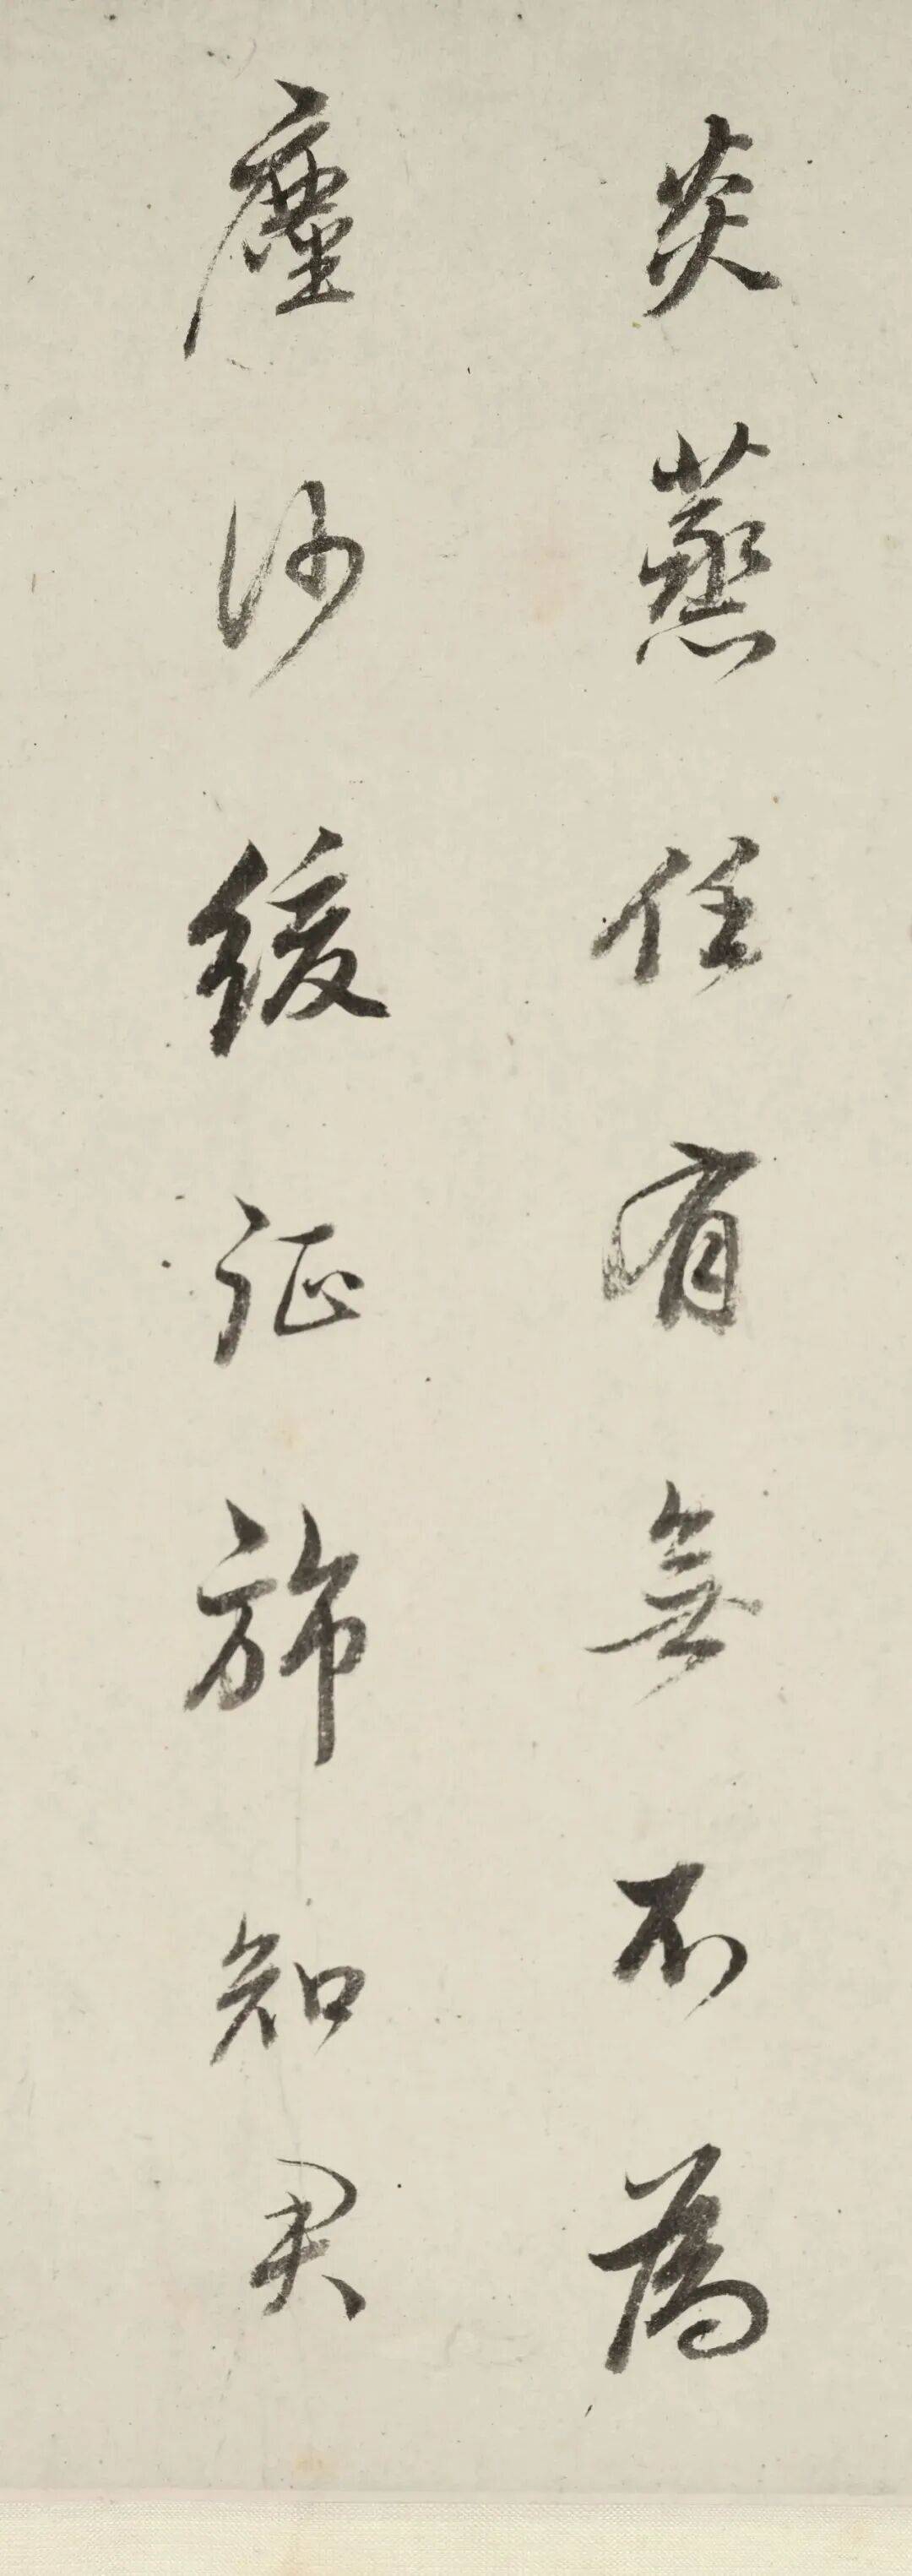 炎蒸任有無不為
塵沙緩征旆知君